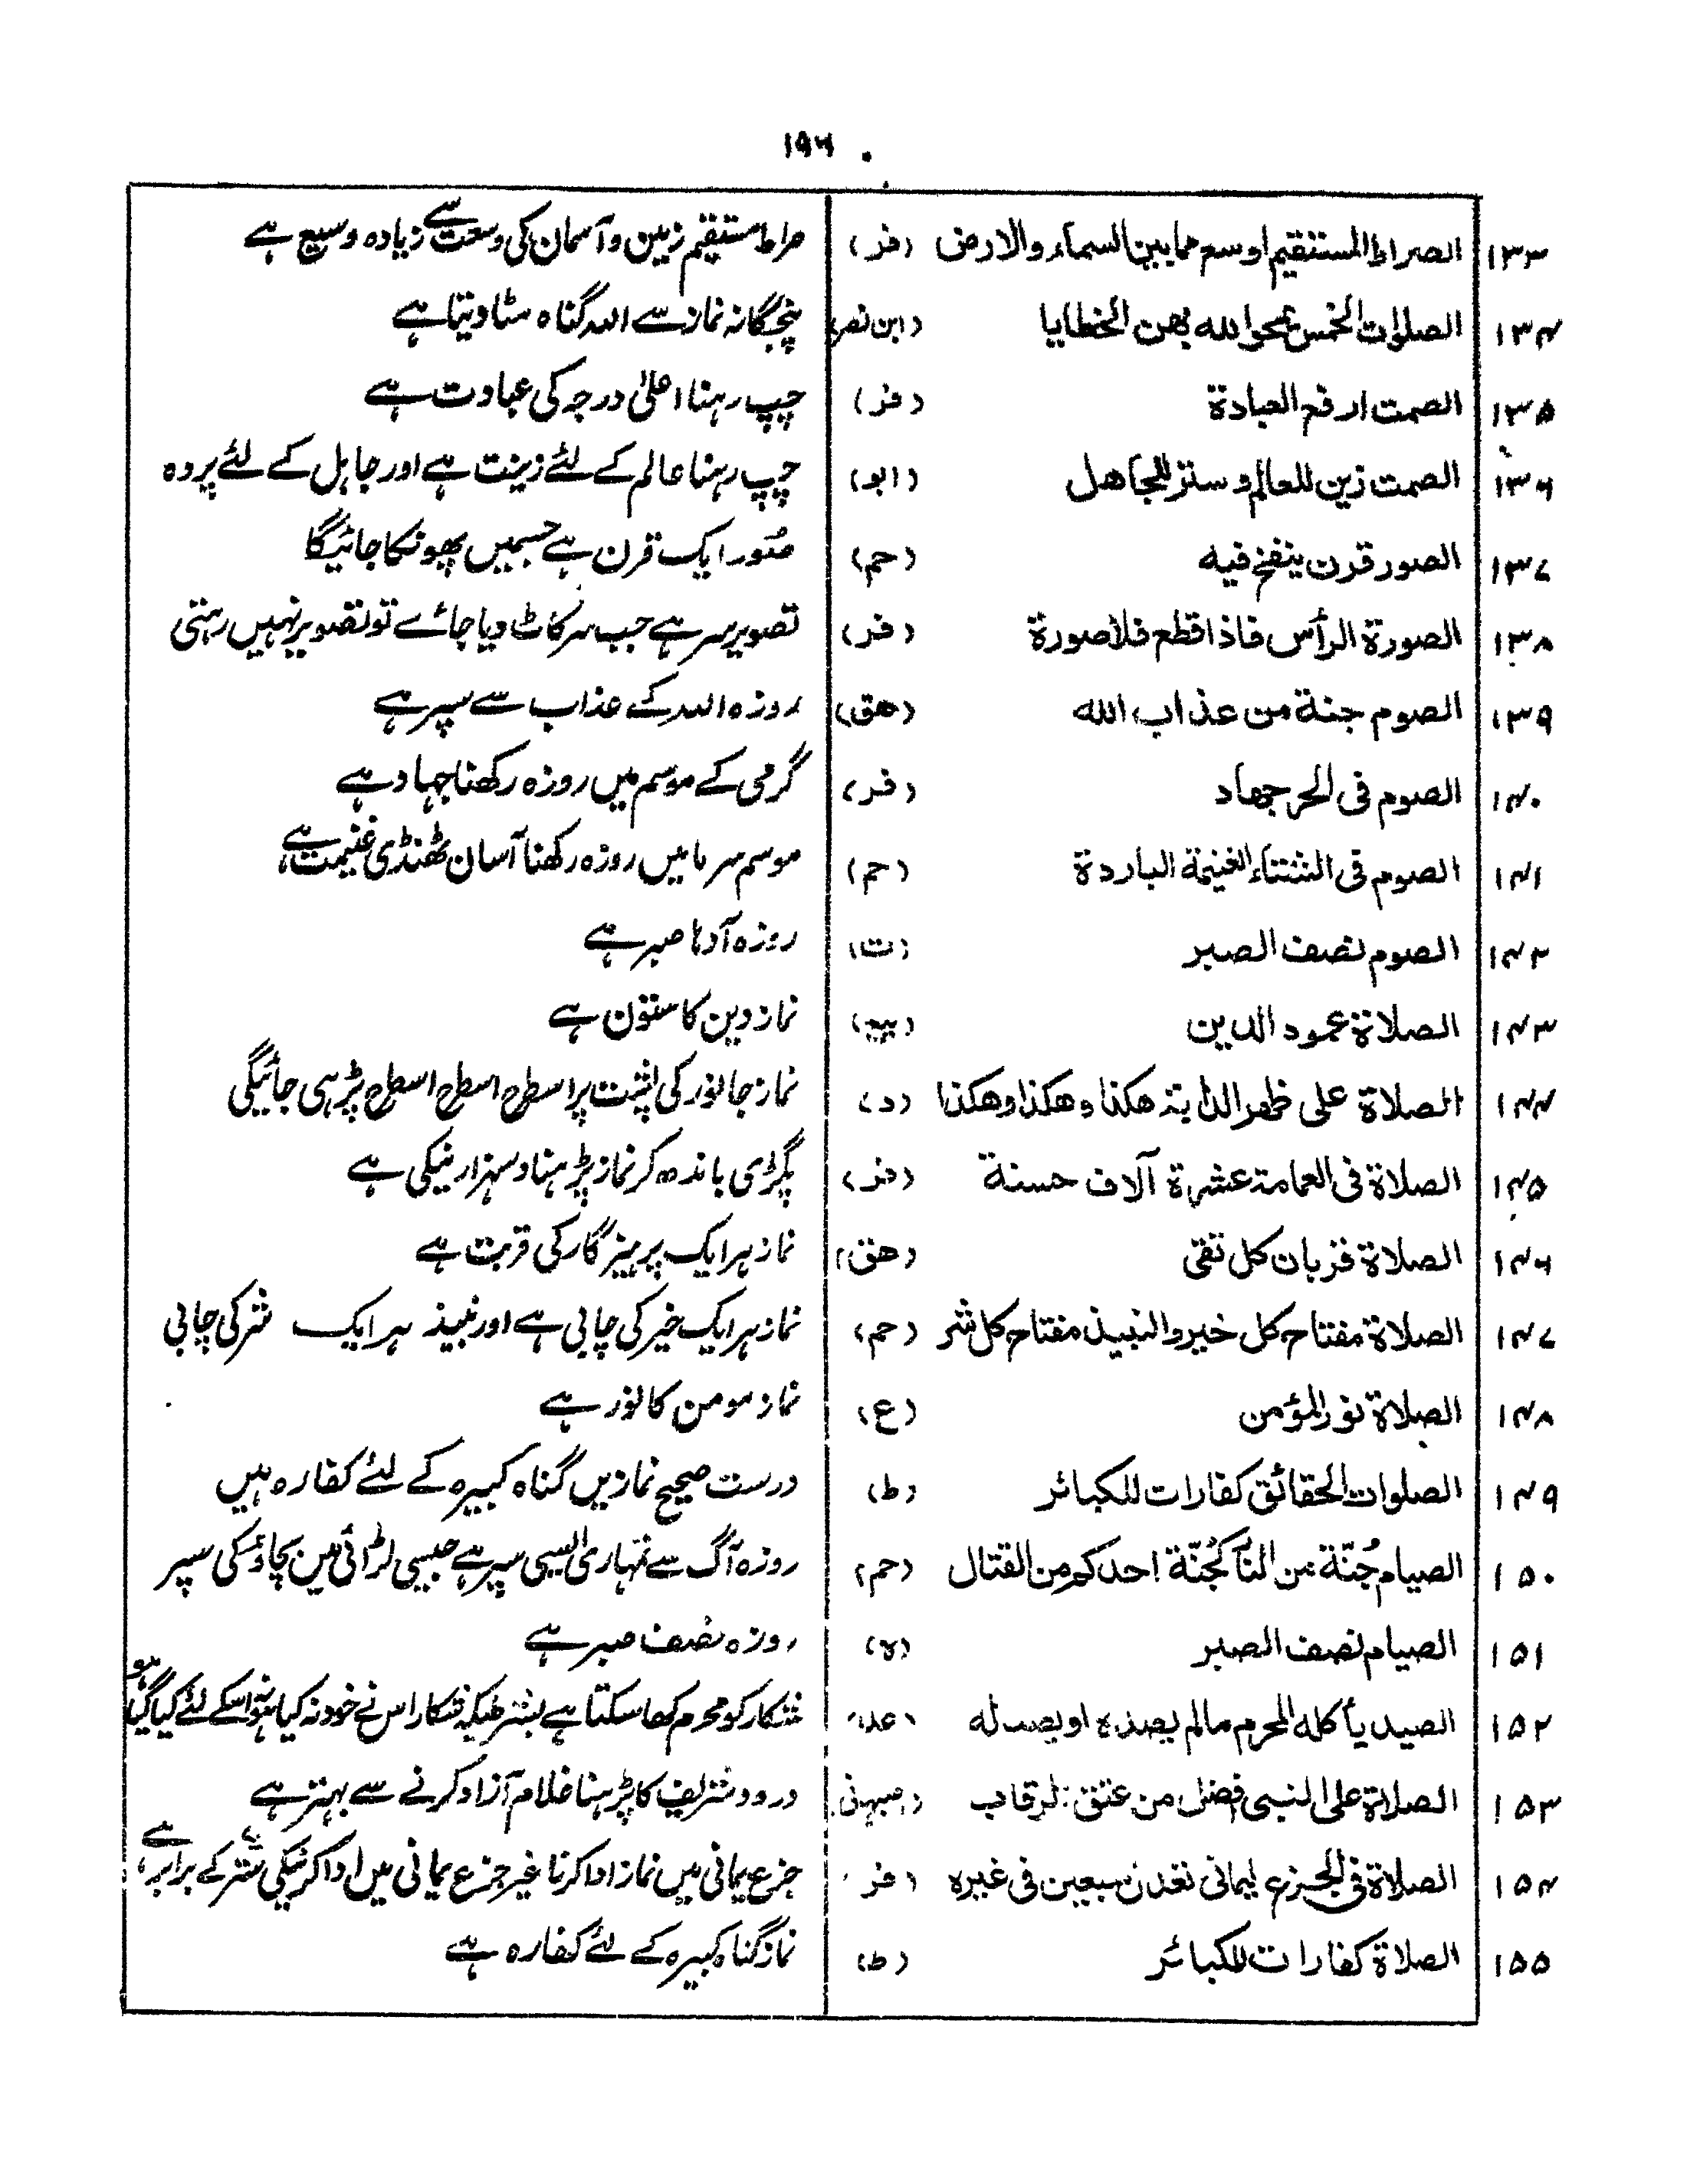 ۱۹۶
۱۳۳ الصراط المستقیم اوسع مما بین السماء والارض (فر) صراط مستقیم زمین و آسمان کی وسعت سے زیادہ وسیع ہے
۱۳۴ الصلوات الخمس یمحو الله بهن الخطایا (ابن نصر) پنجگانہ نماز سے اللہ گناہ مٹا دیتا ہے
۱۳۵ الصمت ارفع العبادة (فر) چپ رہنا اعلیٰ درجہ کی عبادت ہے
۱۳۶ الصمت زین للعالم و ستر للجاهل (ابو) چپ رہنا عالم کے لئے زینت ہے اور جاہل کے لئے پردہ
۱۳۷ الصور قرن ینفخ فیه (حم) صُور ایک قرن ہے جسمیں پھونکا جائیگا
۱۳۸ الصورة الرأس فاذا قطع فلا صورة (فر) تصویر سر ہے جب سر کاٹ دیا جائے تو تصویر نہیں رہتی
۱۳۹ الصوم جنة من عذاب الله (هق) روزہ اللہ کے عذاب سے سپر ہے
۱۴۰ الصوم فی الحر جهاد (فر) گرمی کے موسم میں روزہ رکھنا جہاد ہے
۱۴۱ الصوم فی الشتاء الغنیمة الباردة (حم) موسم سرما میں روزہ رکھنا آسان ٹھنڈی غنیمت ہے
۱۴۲ الصوم نصف الصبر (ت) روزہ آدہا صبر ہے
۱۴۳ الصلاة عمود الدین نماز دین کا ستون ہے
۱۴۴ الصلاة علی ظهر الدابة هکذا و هکذا و هکذا (د) نماز جانور کی پشت پر اسطرح اسطرح اسطرح پڑہی جائیگی
۱۴۵ الصلاة فی العمامة عشرة آلاف حسنة (فر) پگڑی باندھ کر نماز پڑہنا دسہزار نیکی ہے
۱۴۶ الصلاة قربان کل تقی (هق) نماز ہر ایک پرہیزگار کی قربت ہے
۱۴۷ الصلاة مفتاح کل خیر والنبیذ مفتاح کل شر (حم) نماز ہر ایک خیر کی چابی ہے اور نبیذ ہر ایک شر کی چابی
۱۴۸ الصلاة نور المؤمن (ع) نماز مومن کا نور ہے
۱۴۹ الصلوات الحقائق کفارات للکبائر (ط) درست صحیح نمازیں گناہ کبیرہ کے لئے کفارہ ہیں
۱۵۰ الصیام جُنّة من النار کجُنّة احدکم من القتال (حم) روزہ آگ سے تمہاری ایسی سپر ہے جیسی لڑائی میں بچاؤ کی سپر
۱۵۱ الصیام نصف الصبر (ه) روزہ نصف صبر ہے
۱۵۲ الصید یأکله المحرم مالم یصده او یصد له شکار کو محرم کھا سکتا ہے بشرطیکہ شکار اس نے خود نہ کیا ہو نہ اسکے لئے کیا گیا ہو
۱۵۳ الصلاة علی النبی افضل من عتق الرقاب (اصبہانی) درود شریف کا پڑہنا غلام آزاد کرنے سے بہتر ہے
۱۵۴ الصلاة فی الجزع لیمانی تعدل سبعین فی غیره (فر) جزع یمانی میں نماز ادا کرنا غیر جزع یمانی میں ادا کر نیکی ستر کے برابر ہے
۱۵۵ الصلاة کفارات للکبائر (ط) نماز گناہ کبیرہ کے لئے کفارہ ہے